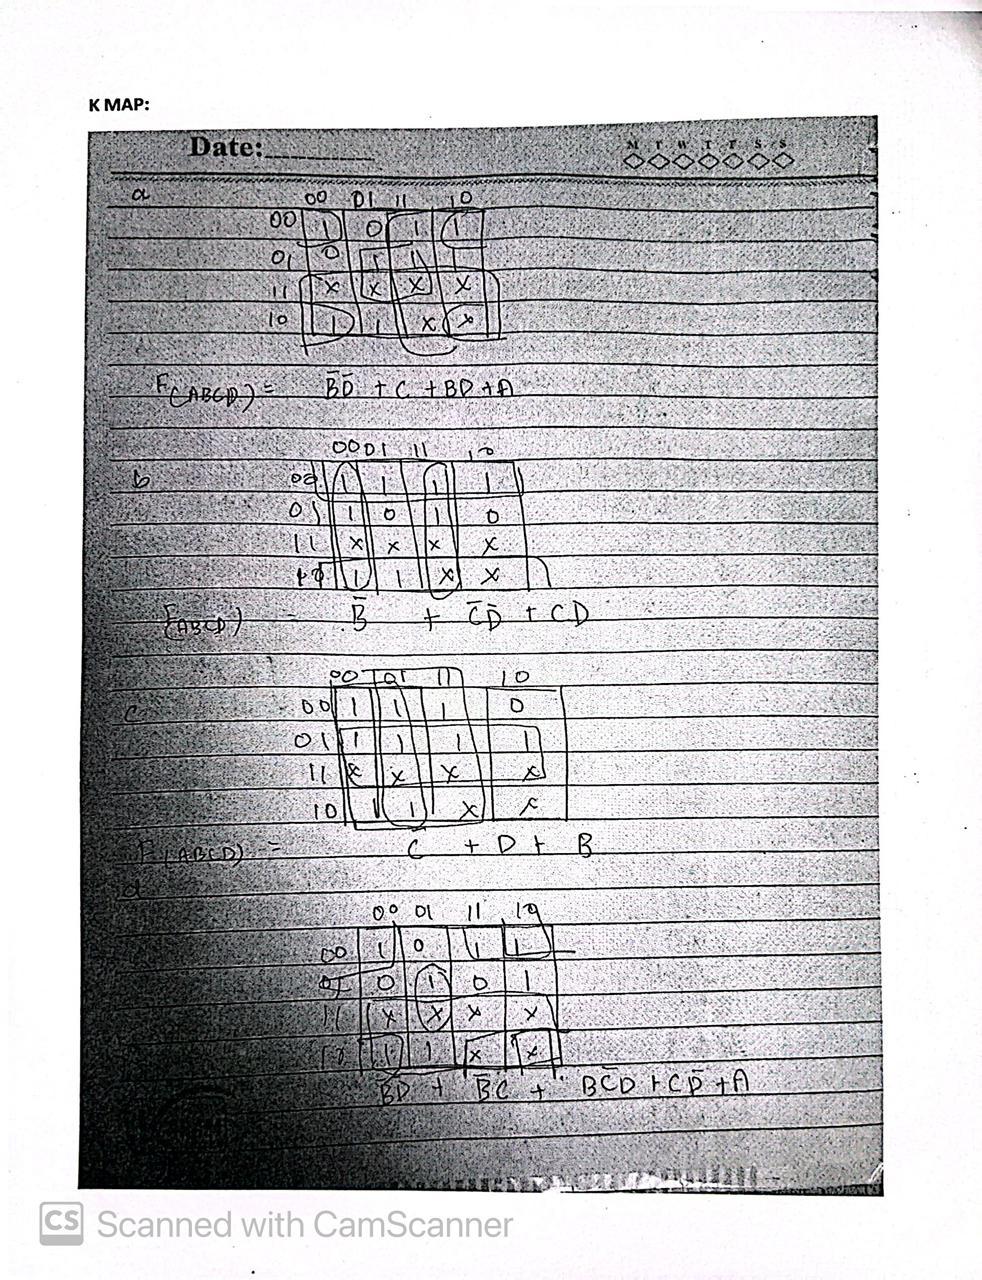 K MAP:
Date:
M T W T F S S
a
00 01 11 10
00 1 0 1 1
01 0 1 1 1
11 x x x x
10 1 1 x x
F(ABCD) = B̅D̅ + C + BD + A
b
00 01 11 10
00 1 1 1 1
01 1 0 1 0
11 x x x x
10 1 1 x x
F(ABCD) = B̅ + C̅D̅ + CD
00 01 11 10
c
00 1 1 1 0
01 1 1 1 1
11 x x x x
10 1 1 x x
F(ABCD) = C̅ + D + B
d
00 01 11 10
00 1 0 1 1
01 0 1 0 1
11 x x x x
10 1 1 x x
B̅D̅ + B̅C + BC̅D + CD̅ + A
CS Scanned with CamScanner